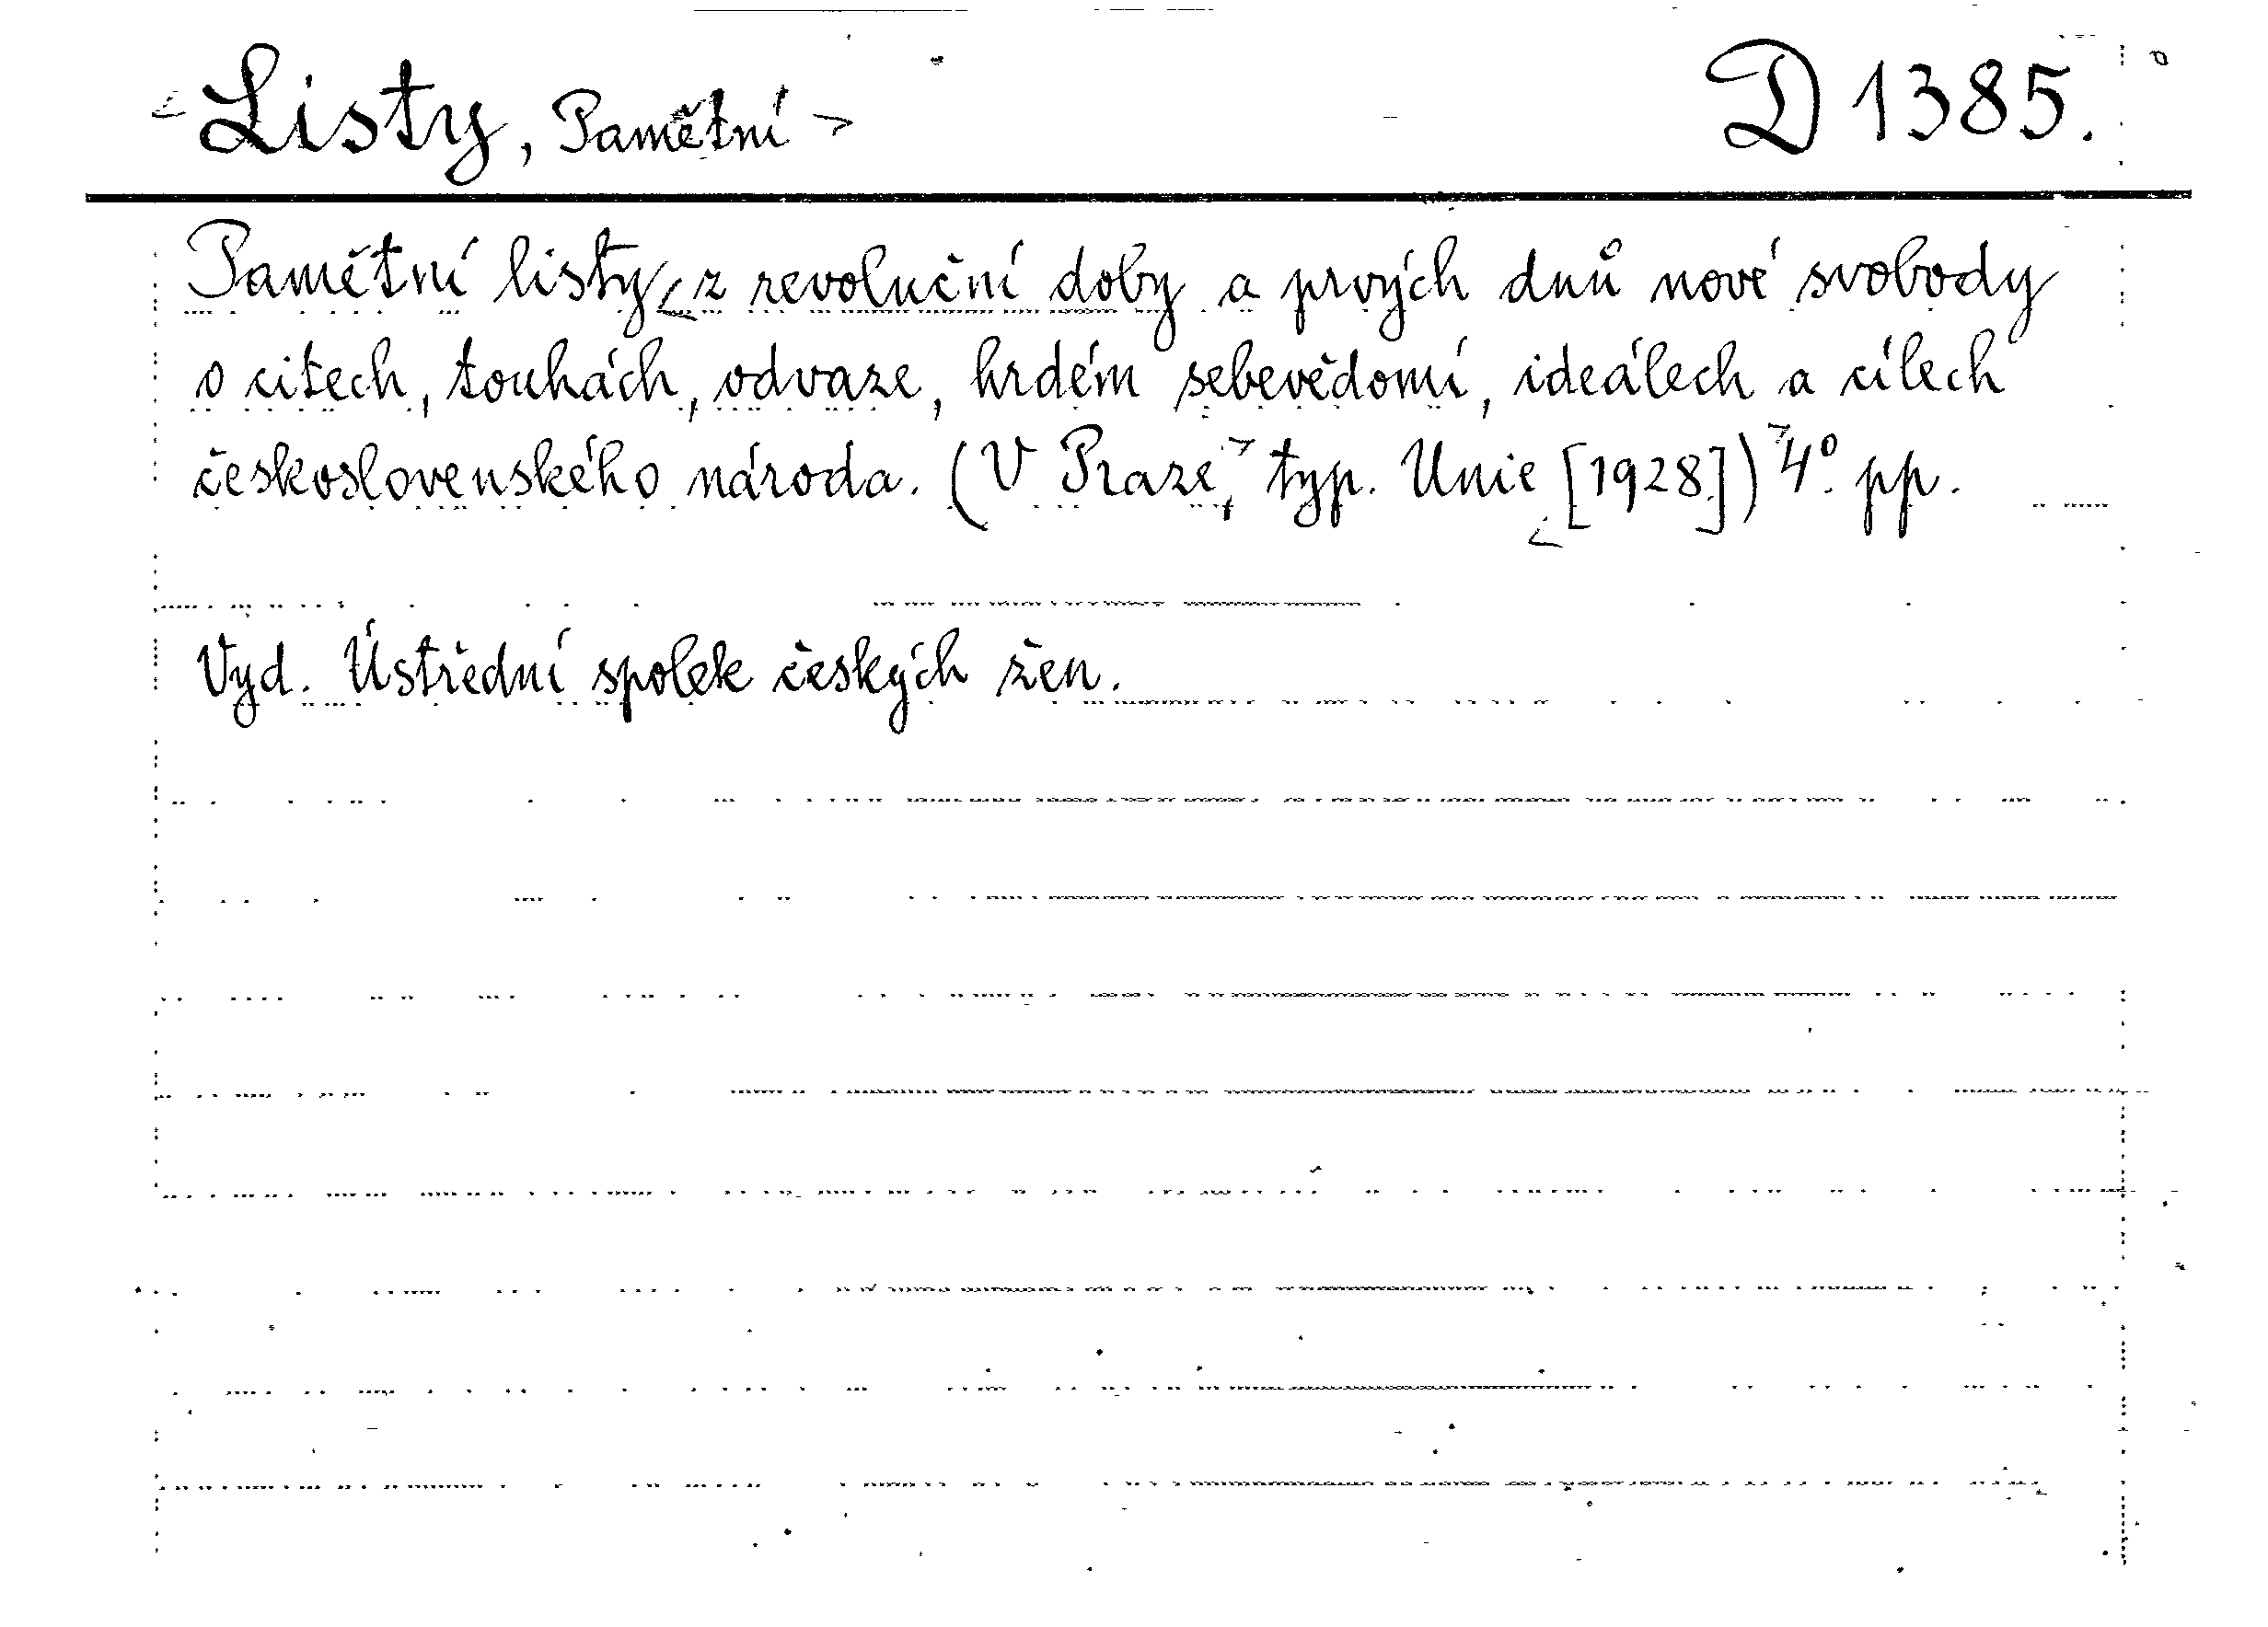 Listy, Pamětní D 1385.
Pamětní listy z revoluční doby a prvých dnů nové svobody
o citech, touhách, odvaze, hrdém sebevědomí, ideálech a cílech
československého národa. (V Praze, typ. Unie [1928]) 4° pp.
Vyd. Ústřední spolek českých žen.